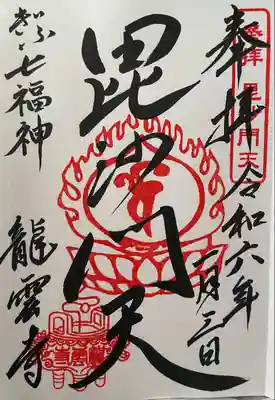 奉拝 令和六年
一月三日
毘沙門天
毘沙門天
ぎふ七福神
龍雲寺